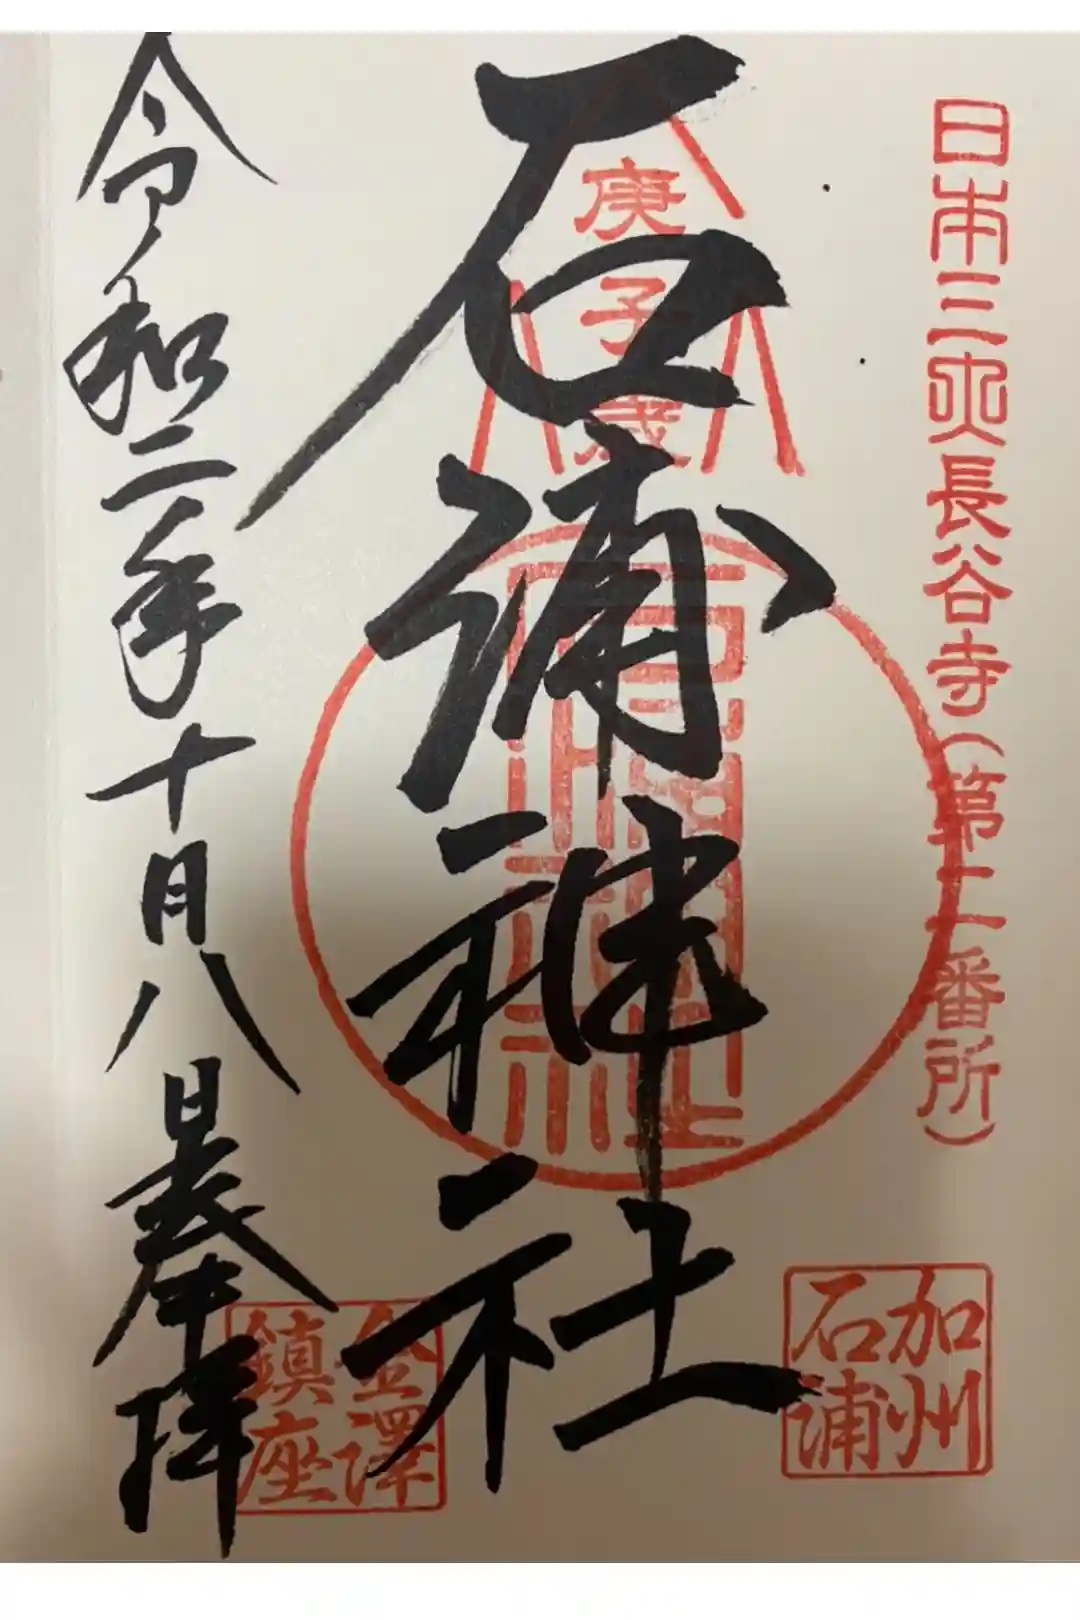 日本三央長谷寺(第二番所)
加州
石浦
庚子歳
石浦神社
石浦神社
金澤
鎮座
令和二年十月八日奉拝